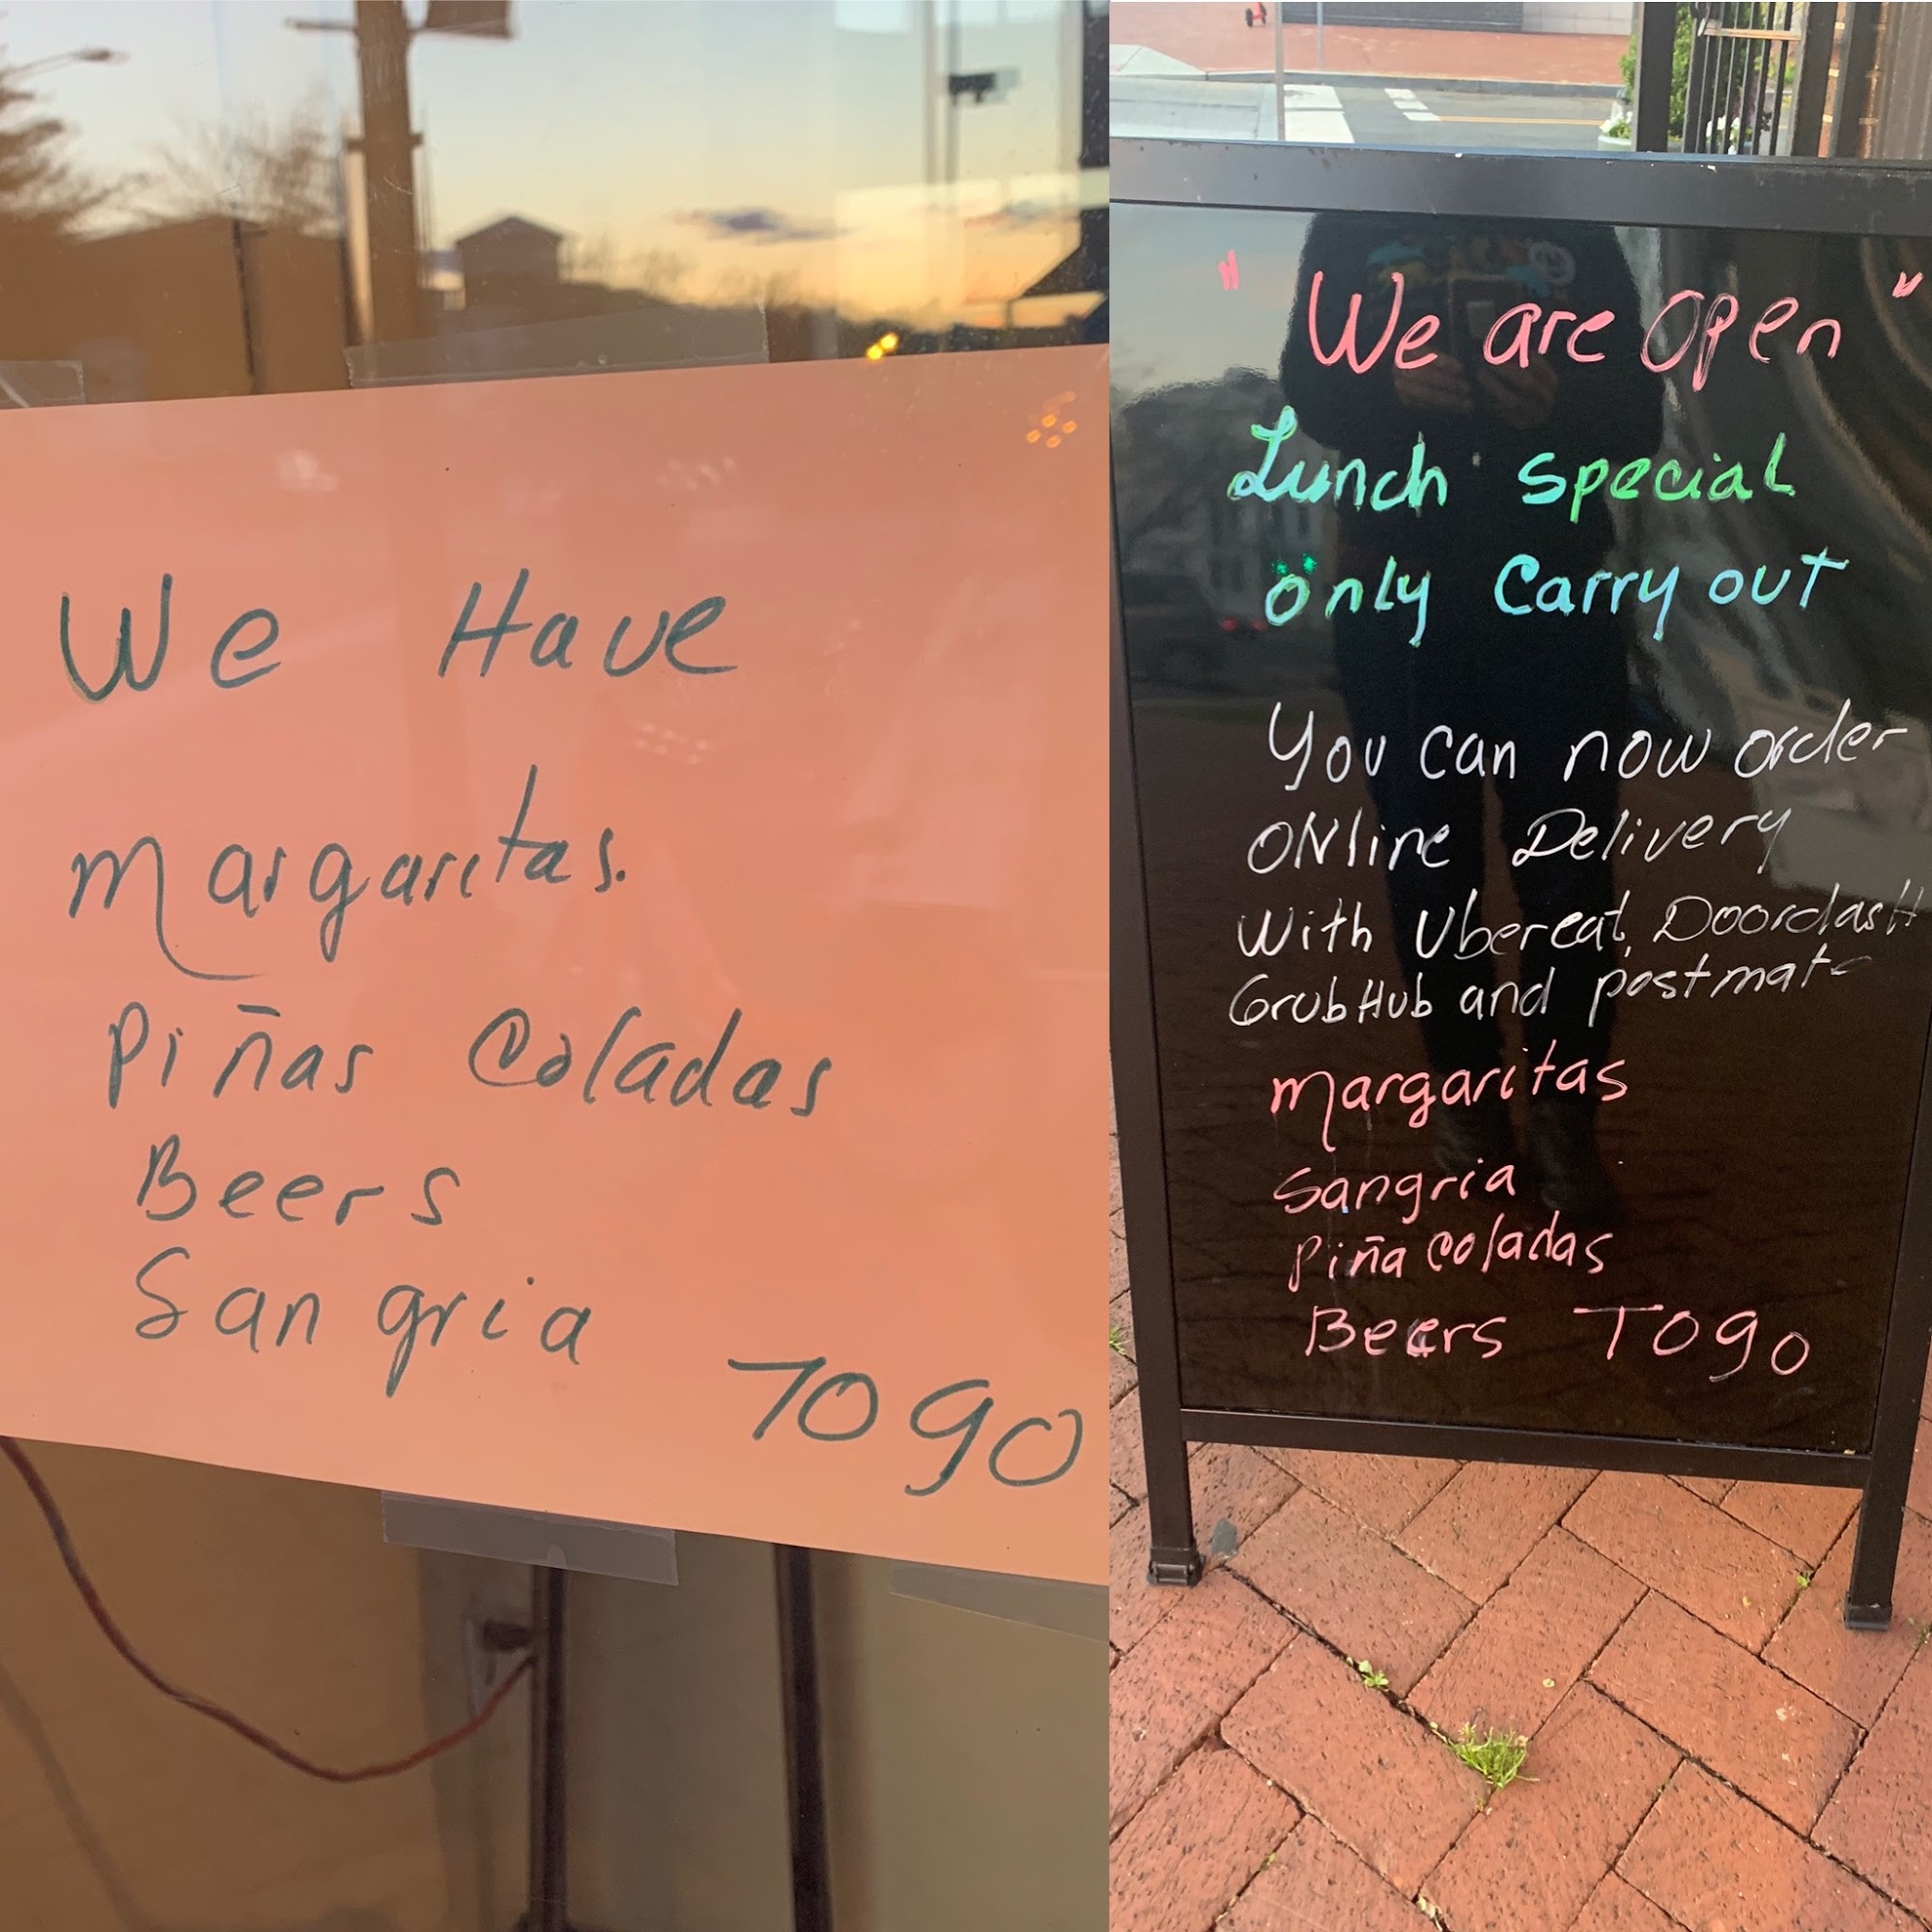 We Have
Margaritas.
Piñas Coladas
Beers
Sangria
TO go
" We are Open "
Lunch special
only Carry out
You can now order
ONline Delivery
With Ubereat, DoordasH
GrubHub and postmate
margaritas
Sangria
Piña coladas
Beers TO go